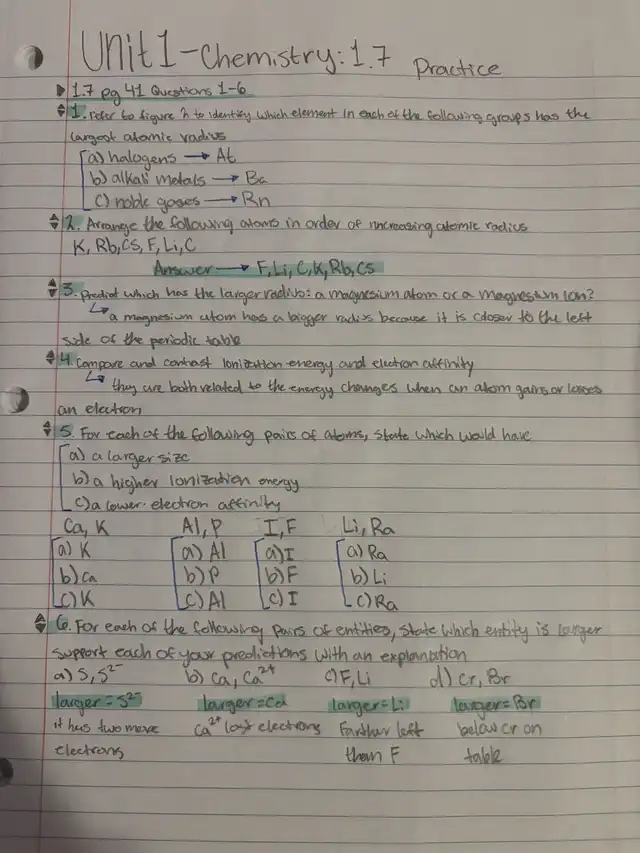 Unit 1 - Chemistry: 1.7 Practice
1.7 pg 41 Questions 1-6
1. refer to figure 2 to identify which element in each of the following groups has the
largest atomic radius
(a) halogens → At
b) alkali metals → Ba
c) noble gases → Rn
2. Arrange the following atoms in order of increasing atomic radius
K, Rb, CS, F, Li, C
Answer → F, Li, C, K, Rb, CS
3. Predict which has the larger radius: a magnesium atom or a magnesium ion?
↳ a magnesium atom has a bigger radius because it is closer to the left
side of the periodic table
4. Compare and contrast Ionization energy and electron affinity
↳ they are both related to the energy changes when an atom gains or losses
an electron
5. For each of the following pairs of atoms, state which would have
a) a larger size
b) a higher Ionization energy
c) a lower electron affinity
Ca, K Al, P I, F Li, Ra
a) K a) Al a) I a) Ra
b) Ca b) P b) F b) Li
c) K c) Al c) I c) Ra
6. For each of the following pairs of entities, state which entity is larger
support each of your predictions with an explanation
a) S, S²⁻ b) Ca, Ca²⁺ c) F, Li d) Cr, Br
larger = S²⁻ larger = Ca larger = Li larger = Br
it has two more Ca²⁺ lost electrons Farther left below cr on
electrons than F table